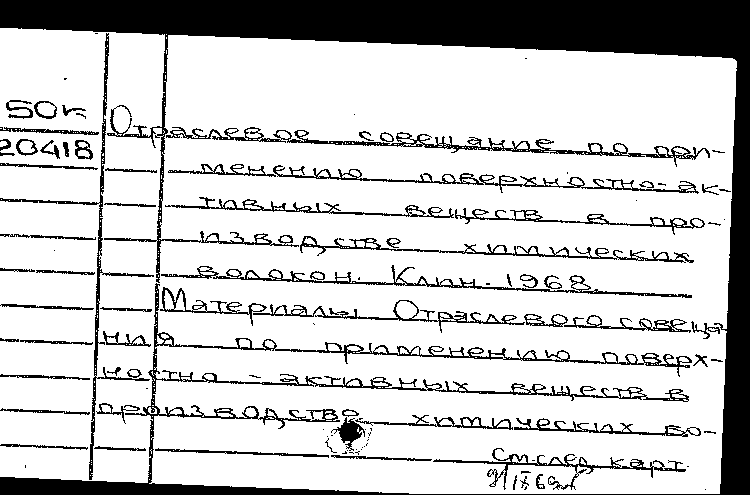 50к
20418
Отраслевое совещание по при-
менению поверхностно-ак-
тивных веществ в про-
изводстве химических
волокон. Клин. 1968.
Материалы Отраслевого совеща
ния по применению поверх-
ностно-активных веществ в
производстве химических во-
См.след.карт